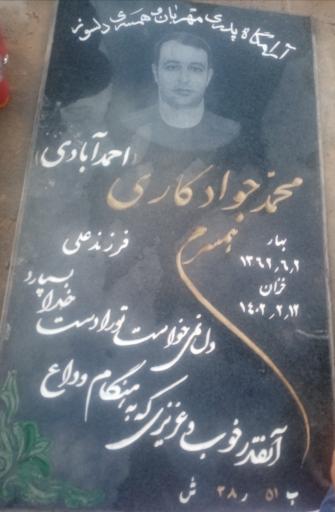 آرامگاه پدری مهربان و همسری دلسوز
(احمدآبادی)
محمدجواد کاری
همسرم
فرزند علی
بهار
۱۳۶۲٫۶٫۲
خزان
۱۴۰۲٫۲٫۱۲
آنقدر خوب و عزیزی که به هنگام وداع
دل نمی خواست تو را دست خدا بسپارد
ب ۵۱ ر ۳۸ ش